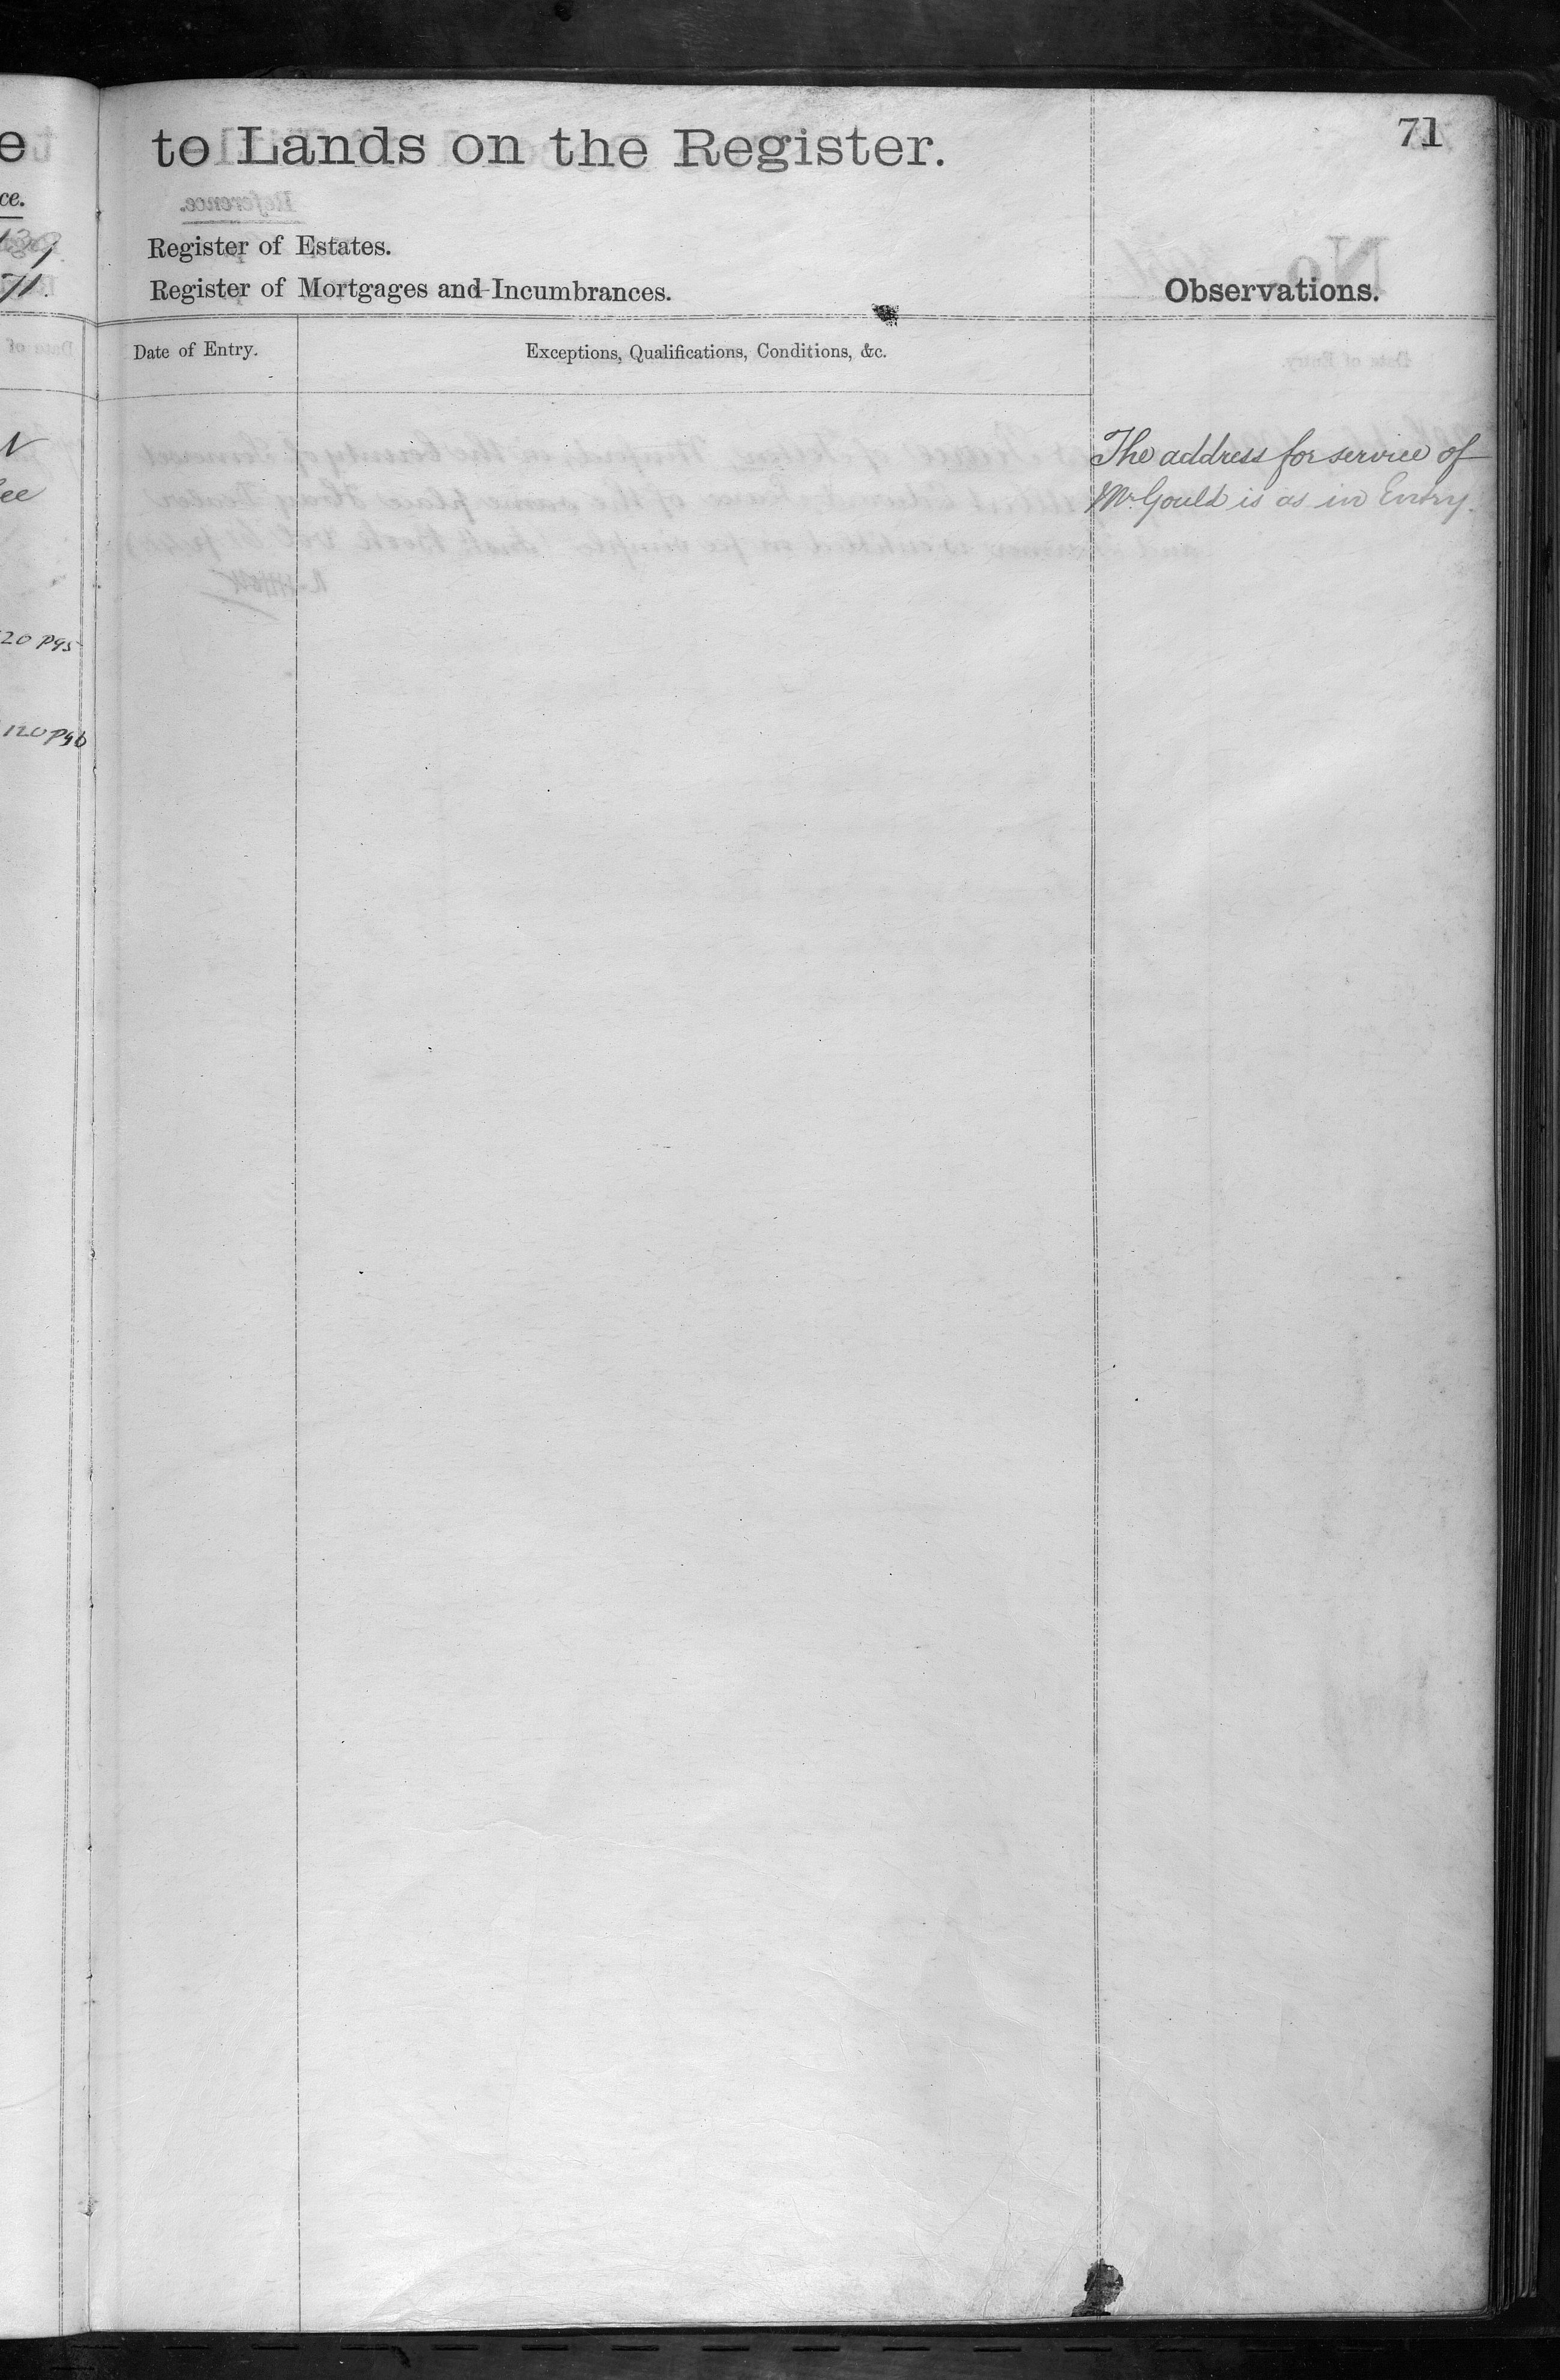 71
to Lands on the Register.
Register of Estates.
Register of Mortgages and Incumbrances.
Observations.
Date of Entry.
Exceptions, Qualifications, Conditions, &c.
The address for service of
Mr. Gould is as in Entry.
e
ce.
71.
ee
20 p95
120 p96